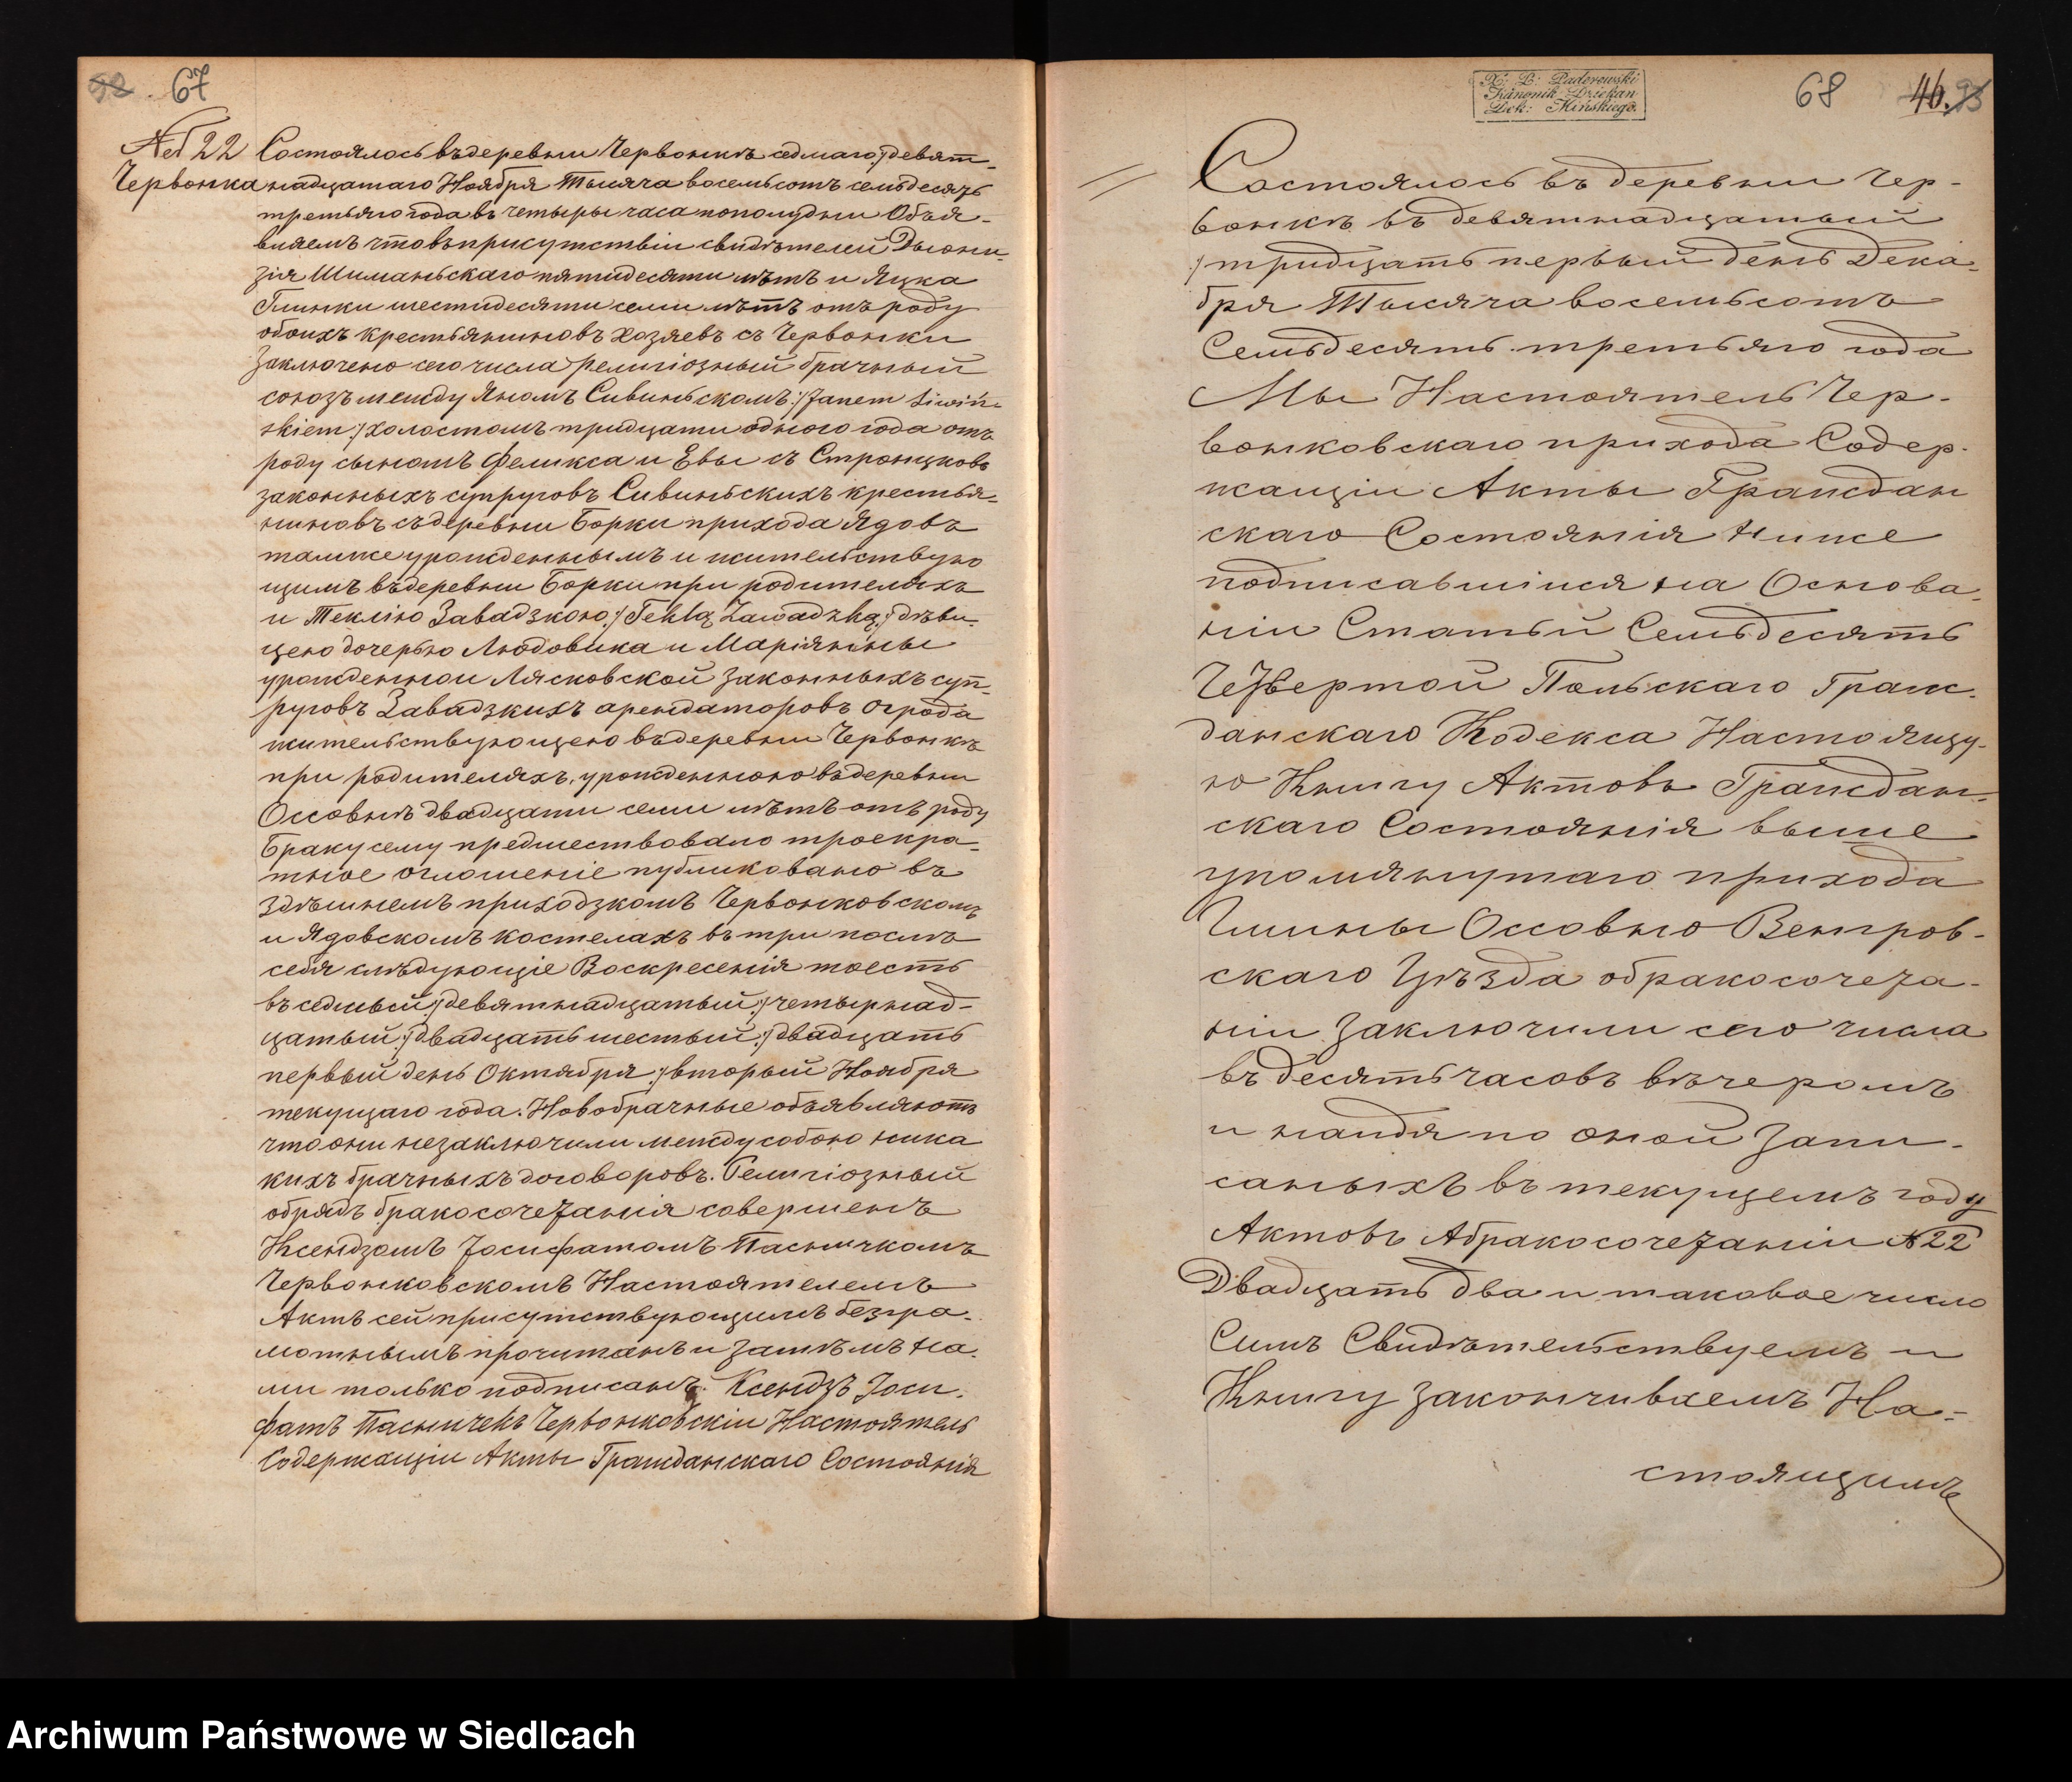 67
№ 22 Состоялось въ деревни Червонкѣ седмаго /девят-
Червонка надцатаго Ноября Тысяча восемьсотъ семьдесятъ
третьяго года въ четыры часа пополудни Объя-
вляемъ что въ присутствіи свидѣтелей Дыони-
зія Шиманьскаго пятидесяти лѣтъ и Яцка
Глинки шестидесяти семи лѣтъ отъ роду
обоихъ крестьяниновъ хозяевъ съ Червонки
Заключено сего числа религіозный брачный
союзъ между Яномъ Сивиньскомъ :/Janem Siwiń-
skiem:/ холостомъ тридцати одного года отъ
роду сыномъ Феликса и Евы съ Строицковъ
законныхъ супруговъ Сивиньскихъ крестья-
ниновъ съ деревни Борки прихода Ядовъ
тамже урожденнымъ и жительствую
щимъ въ деревни Борки при родителяхъ
и Теклію Завадзкою :/Teklą Zawadzką:/ дѣви-
цею дочерью Людовика и Маріянны
урожденной Лясковской законныхъ суп-
руговъ Завадзкихъ арендаторовъ огрода
жительствующею въ деревни Червонкѣ
при родителяхъ, урожденною въ деревни
Оссовнѣ двадцати семи лѣтъ отъ роду
Браку сему предшествовало троекра-
тное оглошеніе публиковано въ
здѣшнемъ приходзкомъ Червонковскомъ
и Ядовскомъ костелахъ въ три послѣ
себя слѣдующіе Воскресенія тоесть
въ седмый :/девятнадцатый:/ четырнад-
цатый :/двадцать шестый:/ двадцать
первый день Октября :/вторый Ноября
текущаго года. Новобрачные объявляютъ
что они незаключили между собою ника
кихъ брачныхъ договоровъ. Религіозный
обрядъ бракосочетанія совершенъ
Ксендзомъ Іосифатомъ Пасничкомъ
Червонковскомъ Настоятелемъ
Актъ сей присутствующимъ безгра-
мотнымъ прочитанъ и затѣмъ на-
ми только подписанъ. Ксендзъ Іоси-
фатъ Пасничекъ Червонковскій Настоятель
Содержащіи Акты Гражданскаго Состоянія
X: L: Paderewski
Kanonik Dziekan
Dek: Mińskiego.
68 46. 93
Состоялось въ деревни Чер-
вонкѣ въ девятнадцатый
:/тридцать первый день Дека-
бря Тысяча восемьсотъ
Семьдесять третьяго года
Мы Настоятель Чер-
вонковскаго прихода Содер-
жащіи Акты Граждан
скаго Состоянія Ниже
подписавшійся на Основа-
ніи Статьи Семьдесять
Четвертой Польскаго Граж-
данскаго Кодекса Настоящу-
ю Книгу Актовъ Граждан-
скаго Состоянія выше
упомянутаго прихода
Гмины Оссовно Венгров-
скаго Уѣзда обракосочета-
ніи Заключили сего числа
въ десять часовъ вѣчеромъ
и найдя по оной Запи-
саныхъ въ текущемъ году
Актовъ Абракосочетаніи № 22
Двадцать два и таковое число
Симъ Свидѣтельствуемъ и
Книгу закончиваемъ На-
стоящимъ
Archiwum Państwowe w Siedlcach